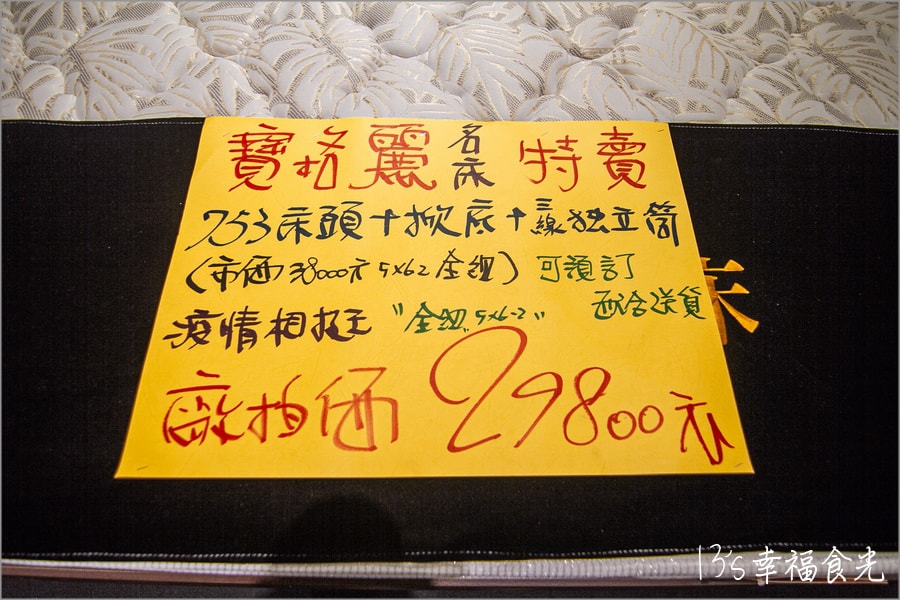 寶格麗名床 特賣
753床頭+掀底+三線独立筒
(市価38000元 5x6.2全組) 可預訂
配合送貨
疫情相挺 "全組.5x6-2"
廠拍価 29800元
13's幸福食光